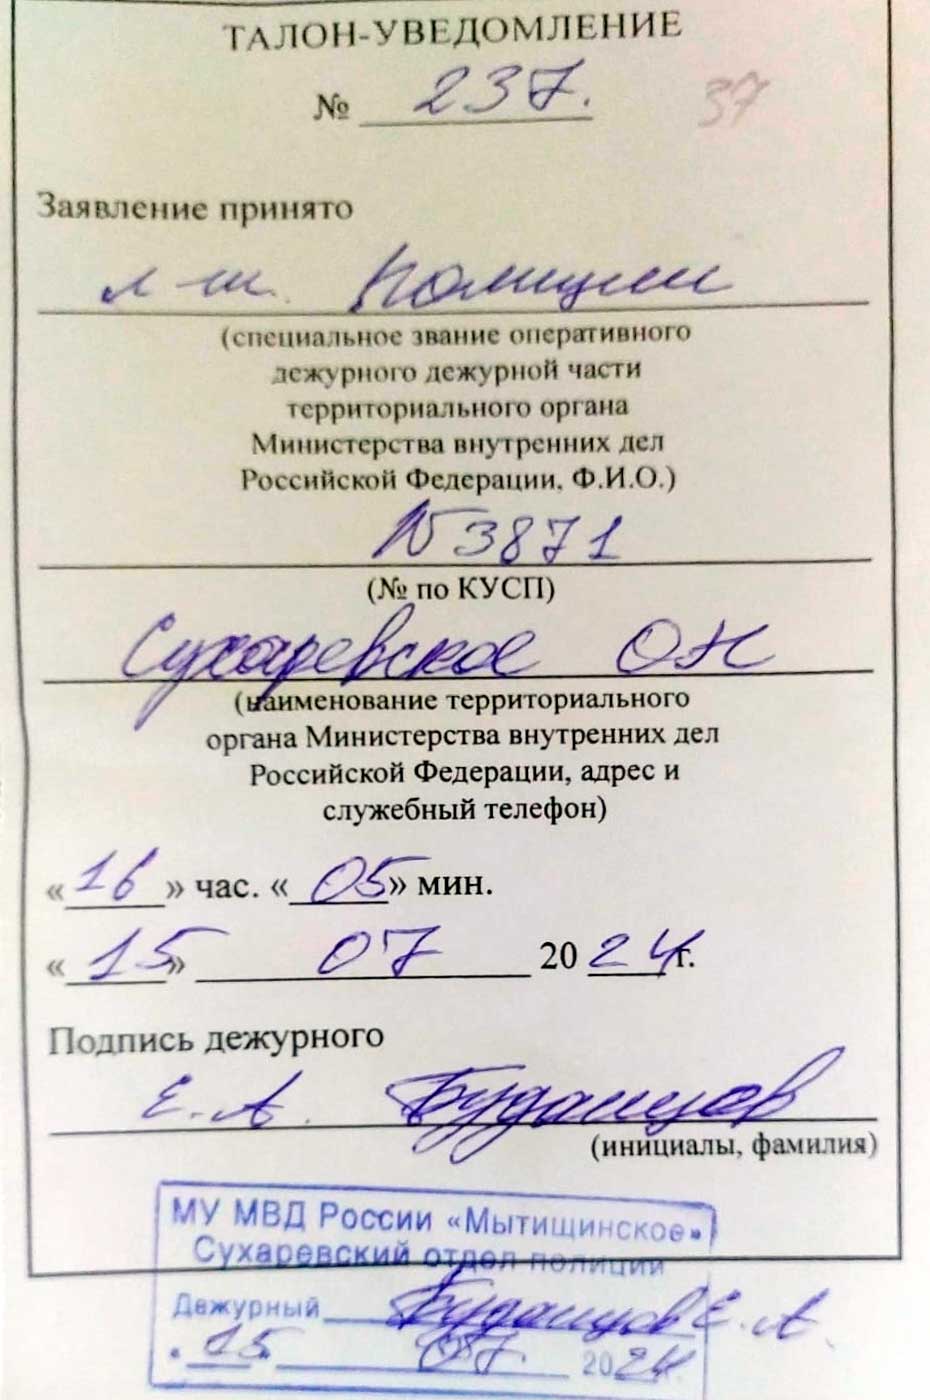 ТАЛОН-УВЕДОМЛЕНИЕ
№ 237.
37
Заявление принято
полиции
(специальное звание оперативного
дежурного дежурной части
территориального органа
Министерства внутренних дел
Российской Федерации, Ф.И.О.)
№3871
(№ по КУСП)
Сухаревское ОП
(наименование территориального
органа Министерства внутренних дел
Российской Федерации, адрес и
служебный телефон)
«16» час. «05» мин.
«15» 07 2024г.
Подпись дежурного
Е.А. Буданцов
(инициалы, фамилия)
МУ МВД России «Мытищинское»
Сухаревский отдел полиции
Дежурный Буданцов Е.А.
"15" 07. 2024